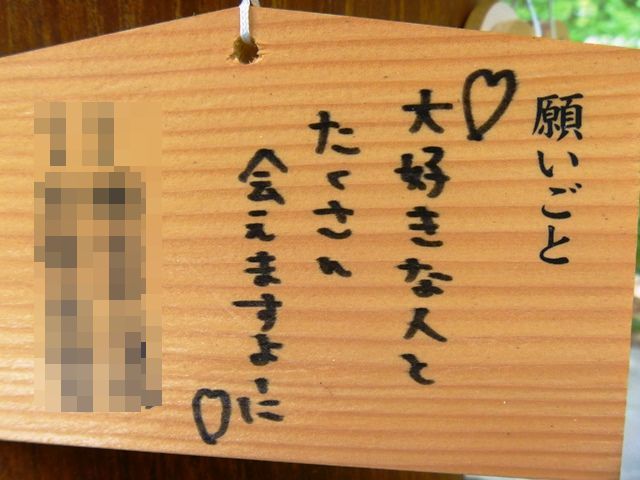 願いごと
♡大好きな人と
たくさん
会えますように♡